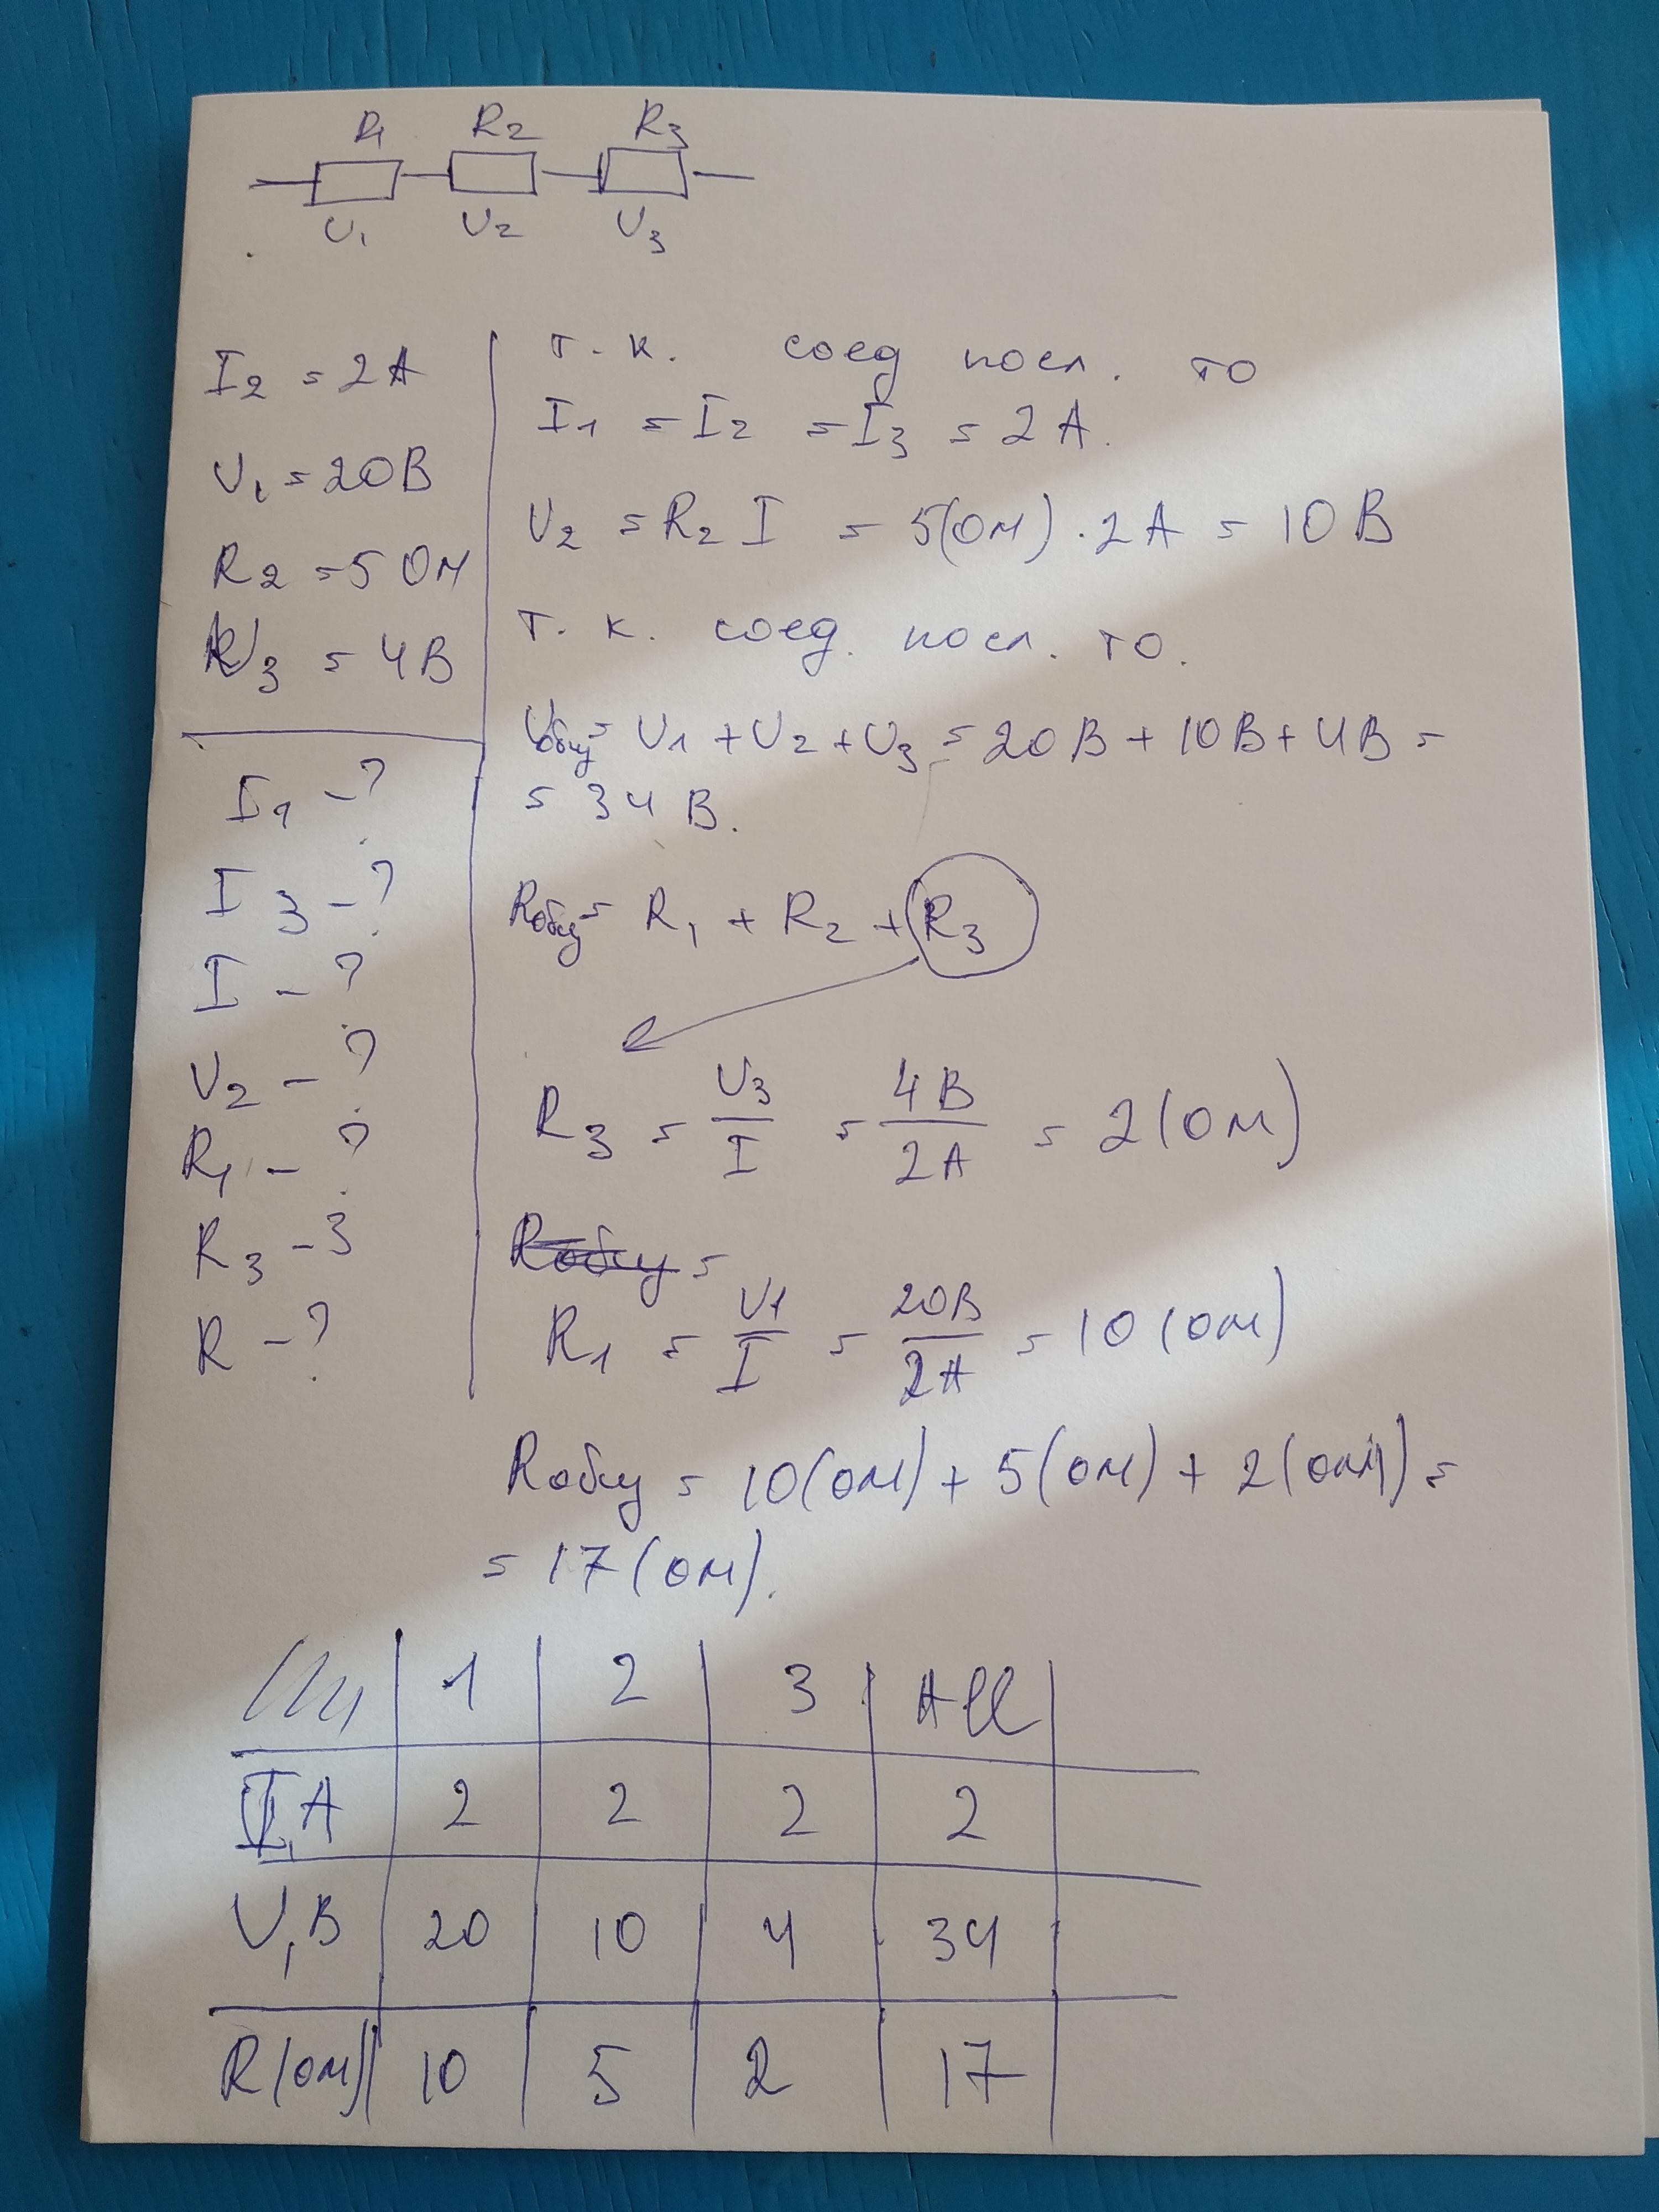 R₁ R₂ R₃
U₁ U₂ U₃
I₂ = 2А
U₁ = 20В
R₂ = 5 Ом
U₃ = 4В
I₁ - ?
I₃ - ?
I - ?
U₂ - ?
R₁ - ?
R₃ - 3
R - ?
т. к. соед посл. то
I₁ = I₂ = I₃ = 2А.
U₂ = R₂ I = 5(Ом) · 2А = 10В
т. к. соед. посл. то.
Uобщ = U₁ + U₂ + U₃ = 20В + 10В + 4В =
= 34В.
Rобщ = R₁ + R₂ + R₃
R₃ = U₃/I = 4В/2А = 2(Ом)
Rобщ =
R₁ = U₁/I = 20В/2А = 10(Ом)
Rобщ = 10(Ом) + 5(Ом) + 2(Ом) =
= 17(Ом).
1 2 3 All
I,А 2 2 2 2
U,В 20 10 4 34
R(Ом) 10 5 2 17